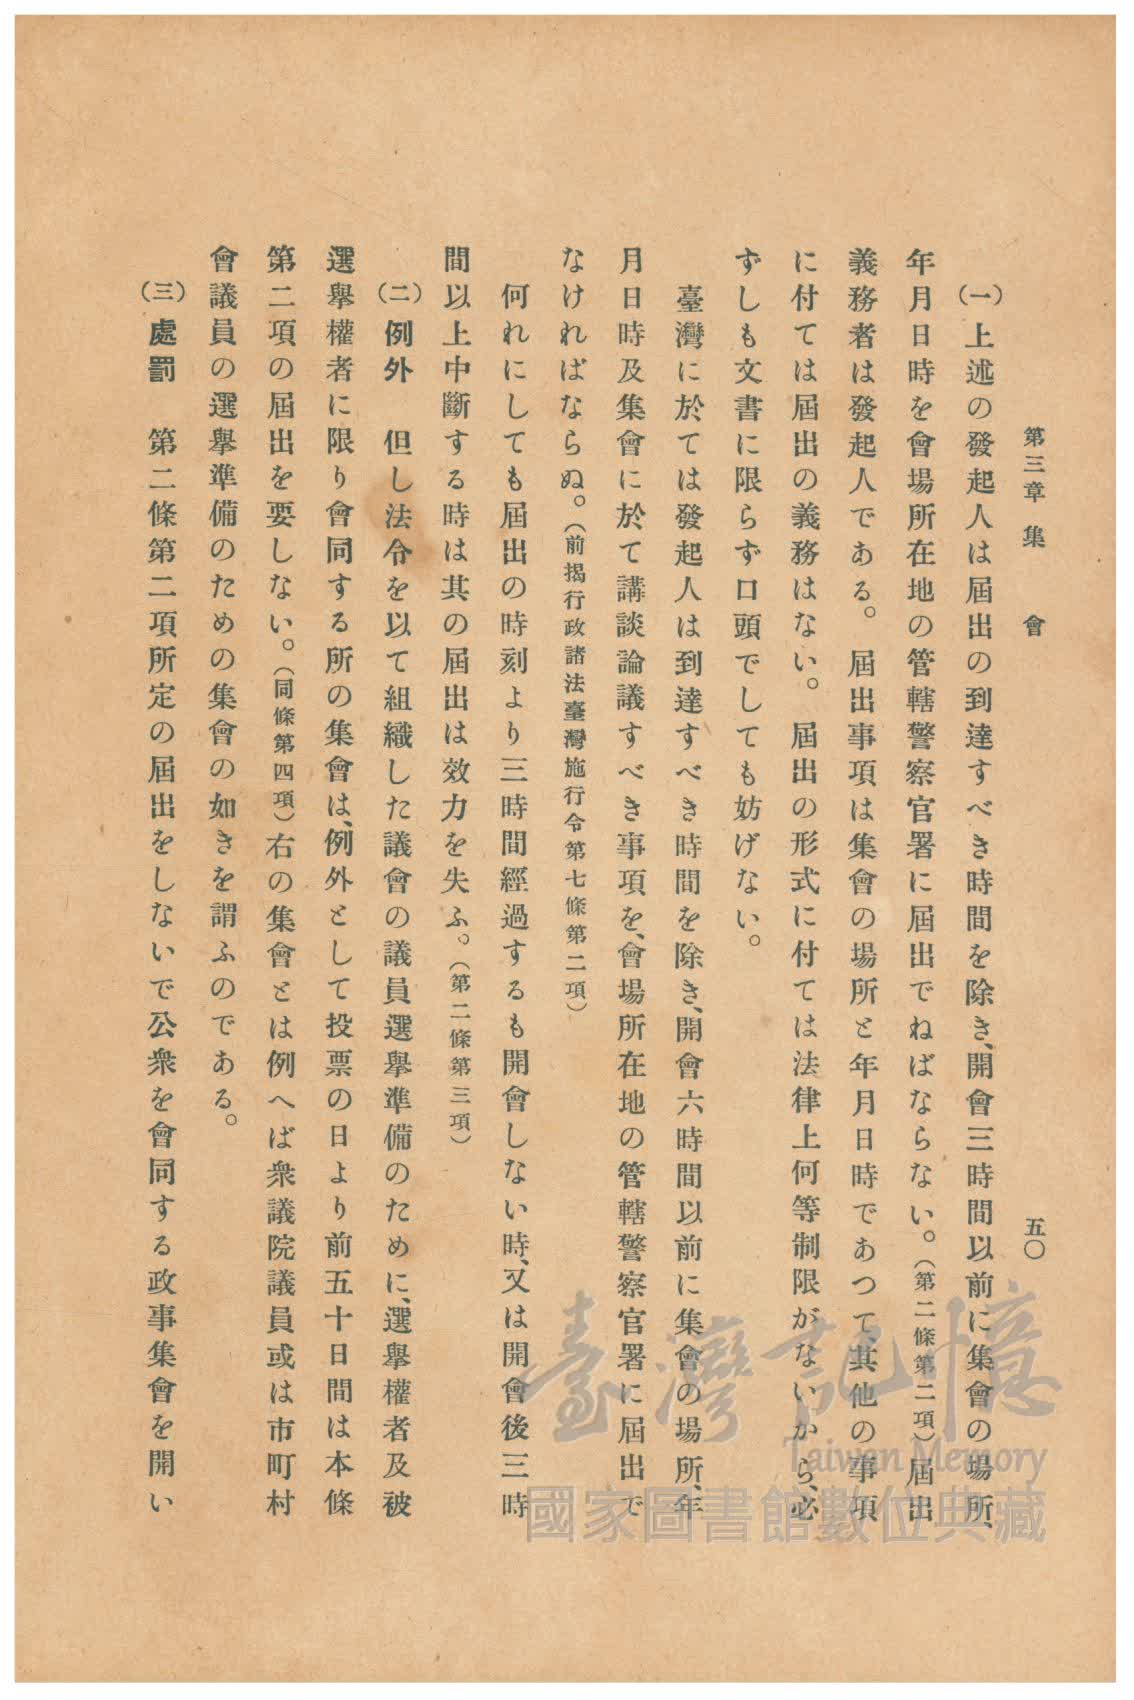 第三章 集 會 五〇
(一)上述の發起人は屆出の到達すべき時間を除き、開會三時間以前に集會の場所、
年月日時を會場所在地の管轄警察官署に屆出でねばならない。(第二條第二項)屆出
義務者は發起人である。屆出事項は集會の場所と年月日時であつて其他の事項
に付ては屆出の義務はない。屆出の形式に付ては法律上何等制限がないから、必
ずしも文書に限らず口頭でしても妨げない。
臺灣に於ては發起人は到達すべき時間を除き、開會六時間以前に集會の場所、年
月日時及集會に於て講談論議すべき事項を、會場所在地の管轄警察官署に屆出で
なければならぬ。(前揭行政諸法臺灣施行令第七條第二項)
何れにしても屆出の時刻より三時間經過するも開會しない時、又は開會後三時
間以上中斷する時は其の屆出は效力を失ふ。(第二條第三項)
(二)例外 但し法令を以て組織した議會の議員選擧準備のために、選擧權者及被
選擧權者に限り會同する所の集會は、例外として投票の日より前五十日間は本條
第二項の屆出を要しない。(同條第四項)右の集會とは例へば衆議院議員或は市町村
會議員の選擧準備のための集會の如きを謂ふのである。
(三)處罰 第二條第二項所定の屆出をしないで公衆を會同する政事集會を開い
臺灣記憶
Taiwan Memory
國家圖書館數位典藏